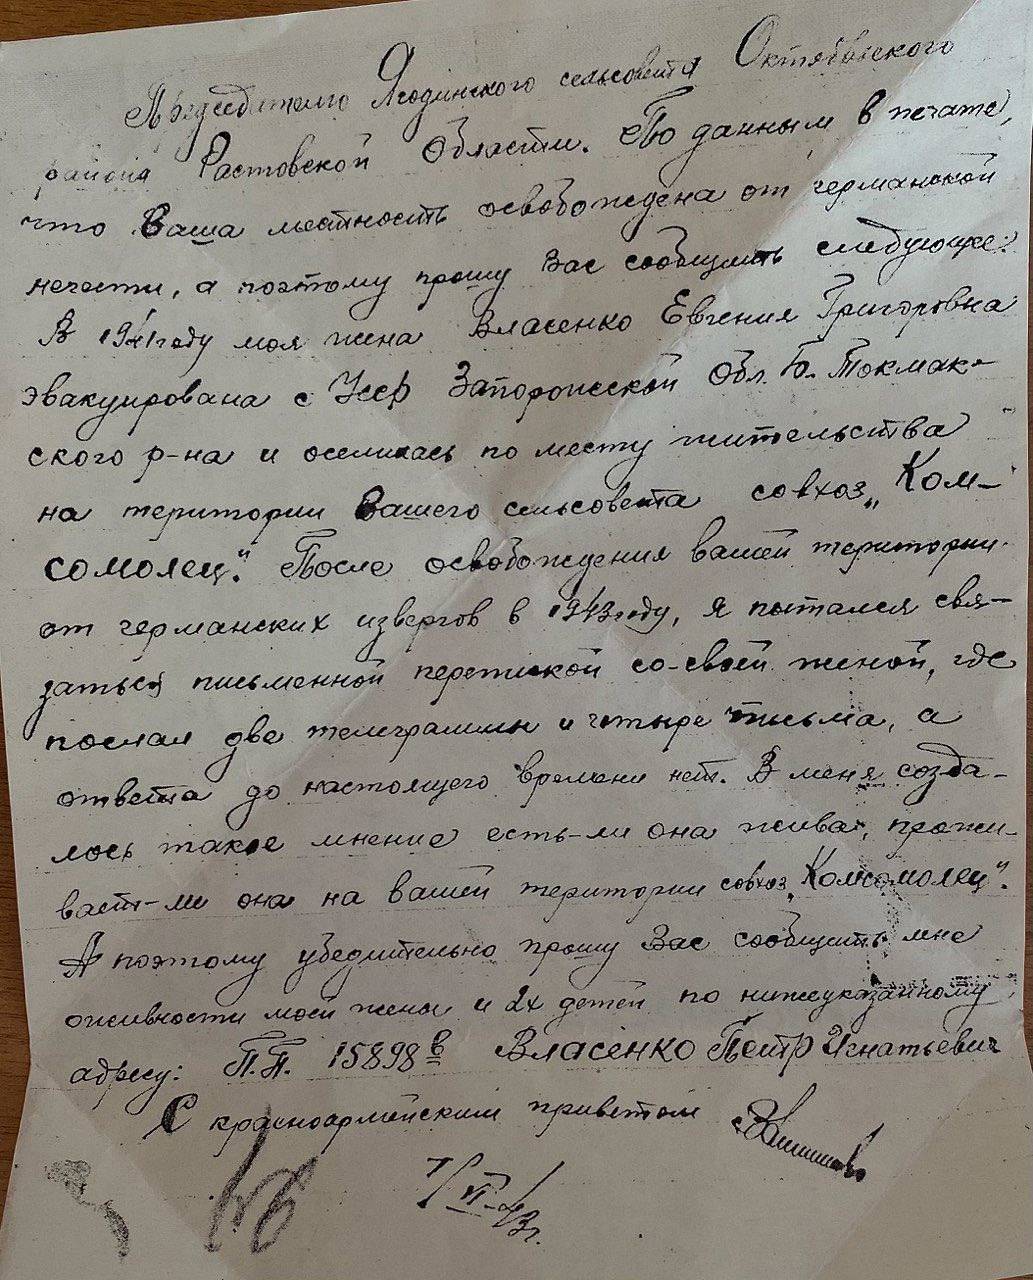 Председателю Ягодинского сельсовета Октябрьского
района Растовской Области. По данным в печате,
что Ваша местность освобождена от германской
нечести, а поэтому прошу Вас сообщить следующее:
В 1941 году моя жена Власенко Евгения Григоровна
эвакуирована с Усср Запорожской Обл. Б. Токмак-
ского р-на и оселилась по месту жительства
на територии Вашего сельсовета совхоз „Ком-
сомолец". После освобождения вашей територии
от германских извергов в 1943 году, я пытался свя-
заться письменной перепиской со-своей женой, где
послал две телеграммы и четыре письма, а
ответа до настоящего времени нет. В меня созда-
лось такое мнение есть-ли она жива, прожи-
вает-ли она на вашей територии совхоз „Комсомолец".
А поэтому убедительно прошу Вас сообщить мне
оживности моей жены и 2х детей по нижеуказанному
адресу: П.П. 15898 в Власенко Петр Игнатьевич
С красноармейским приветом
7/VI-43г.